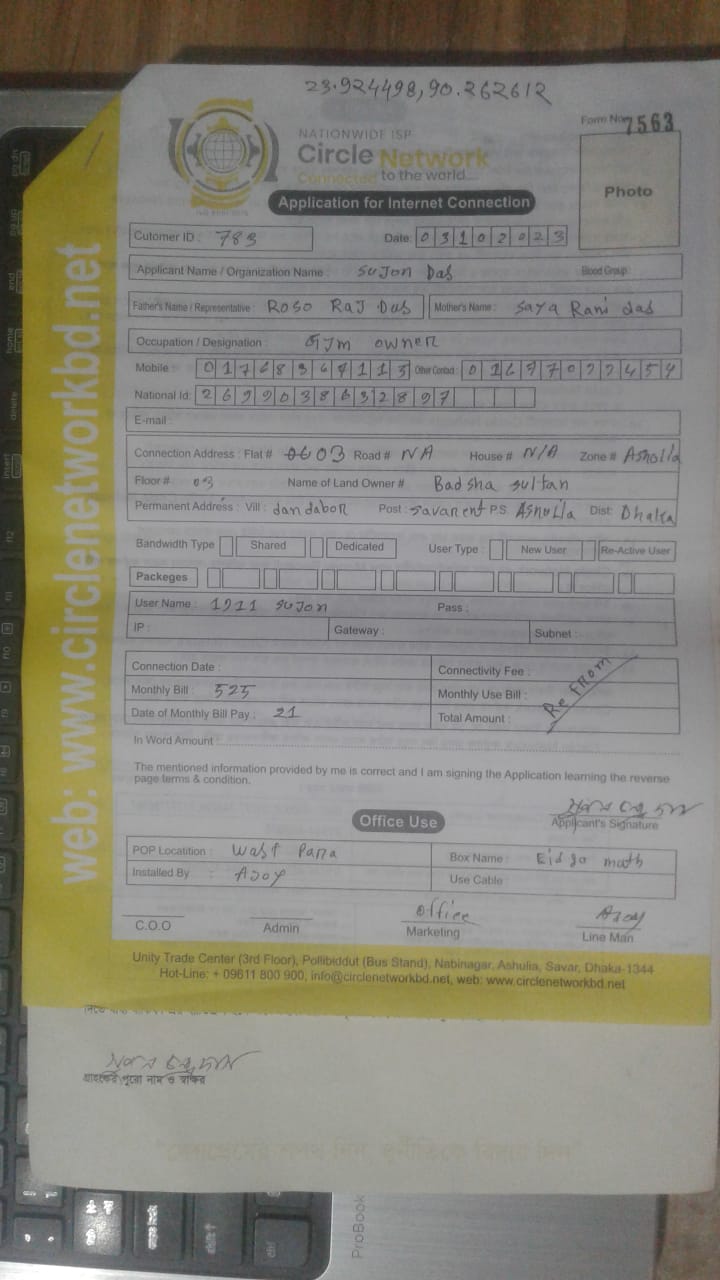 23.924498,90.262612
NATIONWIDE ISP
Circle Network
Connected to the world....
Form No: 7563
Photo
Application for Internet Connection
Cutomer ID : 783 Date: 03102023
Applicant Name / Organization Name : Sujon Das Blood Group :
Father's Name / Representative : Roso Raj Das Mother's Name : Saya Rani das
Occupation / Designation : Gym owner
Mobile : Other Contact :
National Id: 2699038632897
E-mail :
Connection Address : Flat # 0603 Road # N/A House # N/A Zone # Ashulia
Floor # 03 Name of Land Owner # Badsha sultan
Permanent Address : Vill : dandabor Post : Savar cnt P.S. Ashulia Dist: Dhaka
Bandwidth Type Shared Dedicated User Type : New User Re-Active User
Packeges
User Name : 1911 Sujon Pass :
IP : Gateway : Subnet :
Connection Date : Connectivity Fee :
Monthly Bill : 525 Monthly Use Bill :
Date of Monthly Bill Pay : 21 Total Amount :
Re From
In Word Amount :
The mentioned information provided by me is correct and I am signing the Application learning the reverse
page terms & condition.
Applicant's Signature
Office Use
POP Locatition : West Para Box Name : Eid go math
Installed By : Ajoy Use Cable :
Office Ajoy
C.O.O Admin Marketing Line Man
Unity Trade Center (3rd Floor), Pollibiddut (Bus Stand), Nabinagar, Ashulia, Savar, Dhaka-1344
Hot-Line: + 09611 800 900, info@circlenetworkbd.net, web: www.circlenetworkbd.net
web: www.circlenetworkbd.net
গ্রাহকের পুরো নাম ও স্বাক্ষর
ProBook